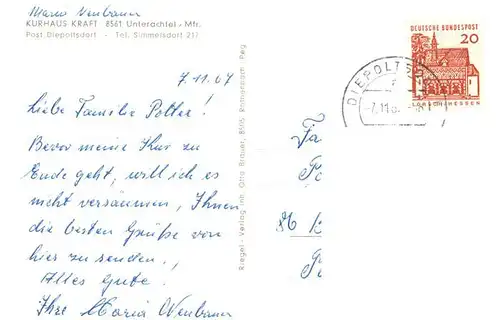 Maria Neubauer
KURHAUS KRAFT 8561 Unterachtel, Mfr.
Post Diepoltsdorf - Tel. Simmelsdorf 217
7.11.67
Liebe Familie Potter!
Bevor meine Kur zu
Ende geht, will ich es
nicht versäumen, Ihnen
die besten Grüße von
hier zu senden.
Alles Gute.
Ihre Maria Neubauer
Riegel-Verlag Inh. Otto Brauer, 8505 Röthenbach/Peg
DEUTSCHE BUNDESPOST
20
LORSCH/HESSEN
DIEPOLTS
-7.11.6
Fa